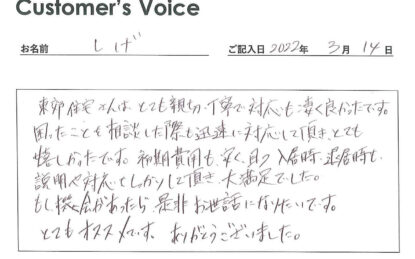 Customer's Voice
お名前 しげ ご記入日 2022年 3月 14日
東郊住宅さんは、とても親切、丁寧で対応も凄く良かったです。
困ったことを相談した際も迅速に対応して頂き、とても
嬉しかったです。初期費用も安く、且つ入居時、退居時も
説明や対応としっかりして頂き、大満足でした。
もし機会があったら、是非お世話になりたいです。
とてもオススメです。ありがとうございました。